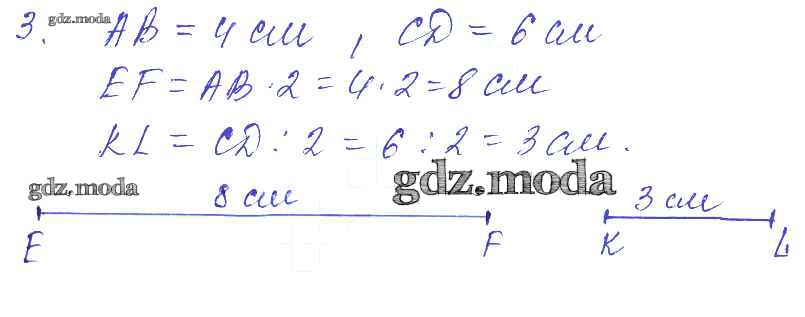 3. gdz.moda AB = 4 см, CD = 6 см
EF = AB · 2 = 4 · 2 = 8 см
KL = CD : 2 = 6 : 2 = 3 см.
gdz.moda 8 см gdz.moda 3 см
E F K L